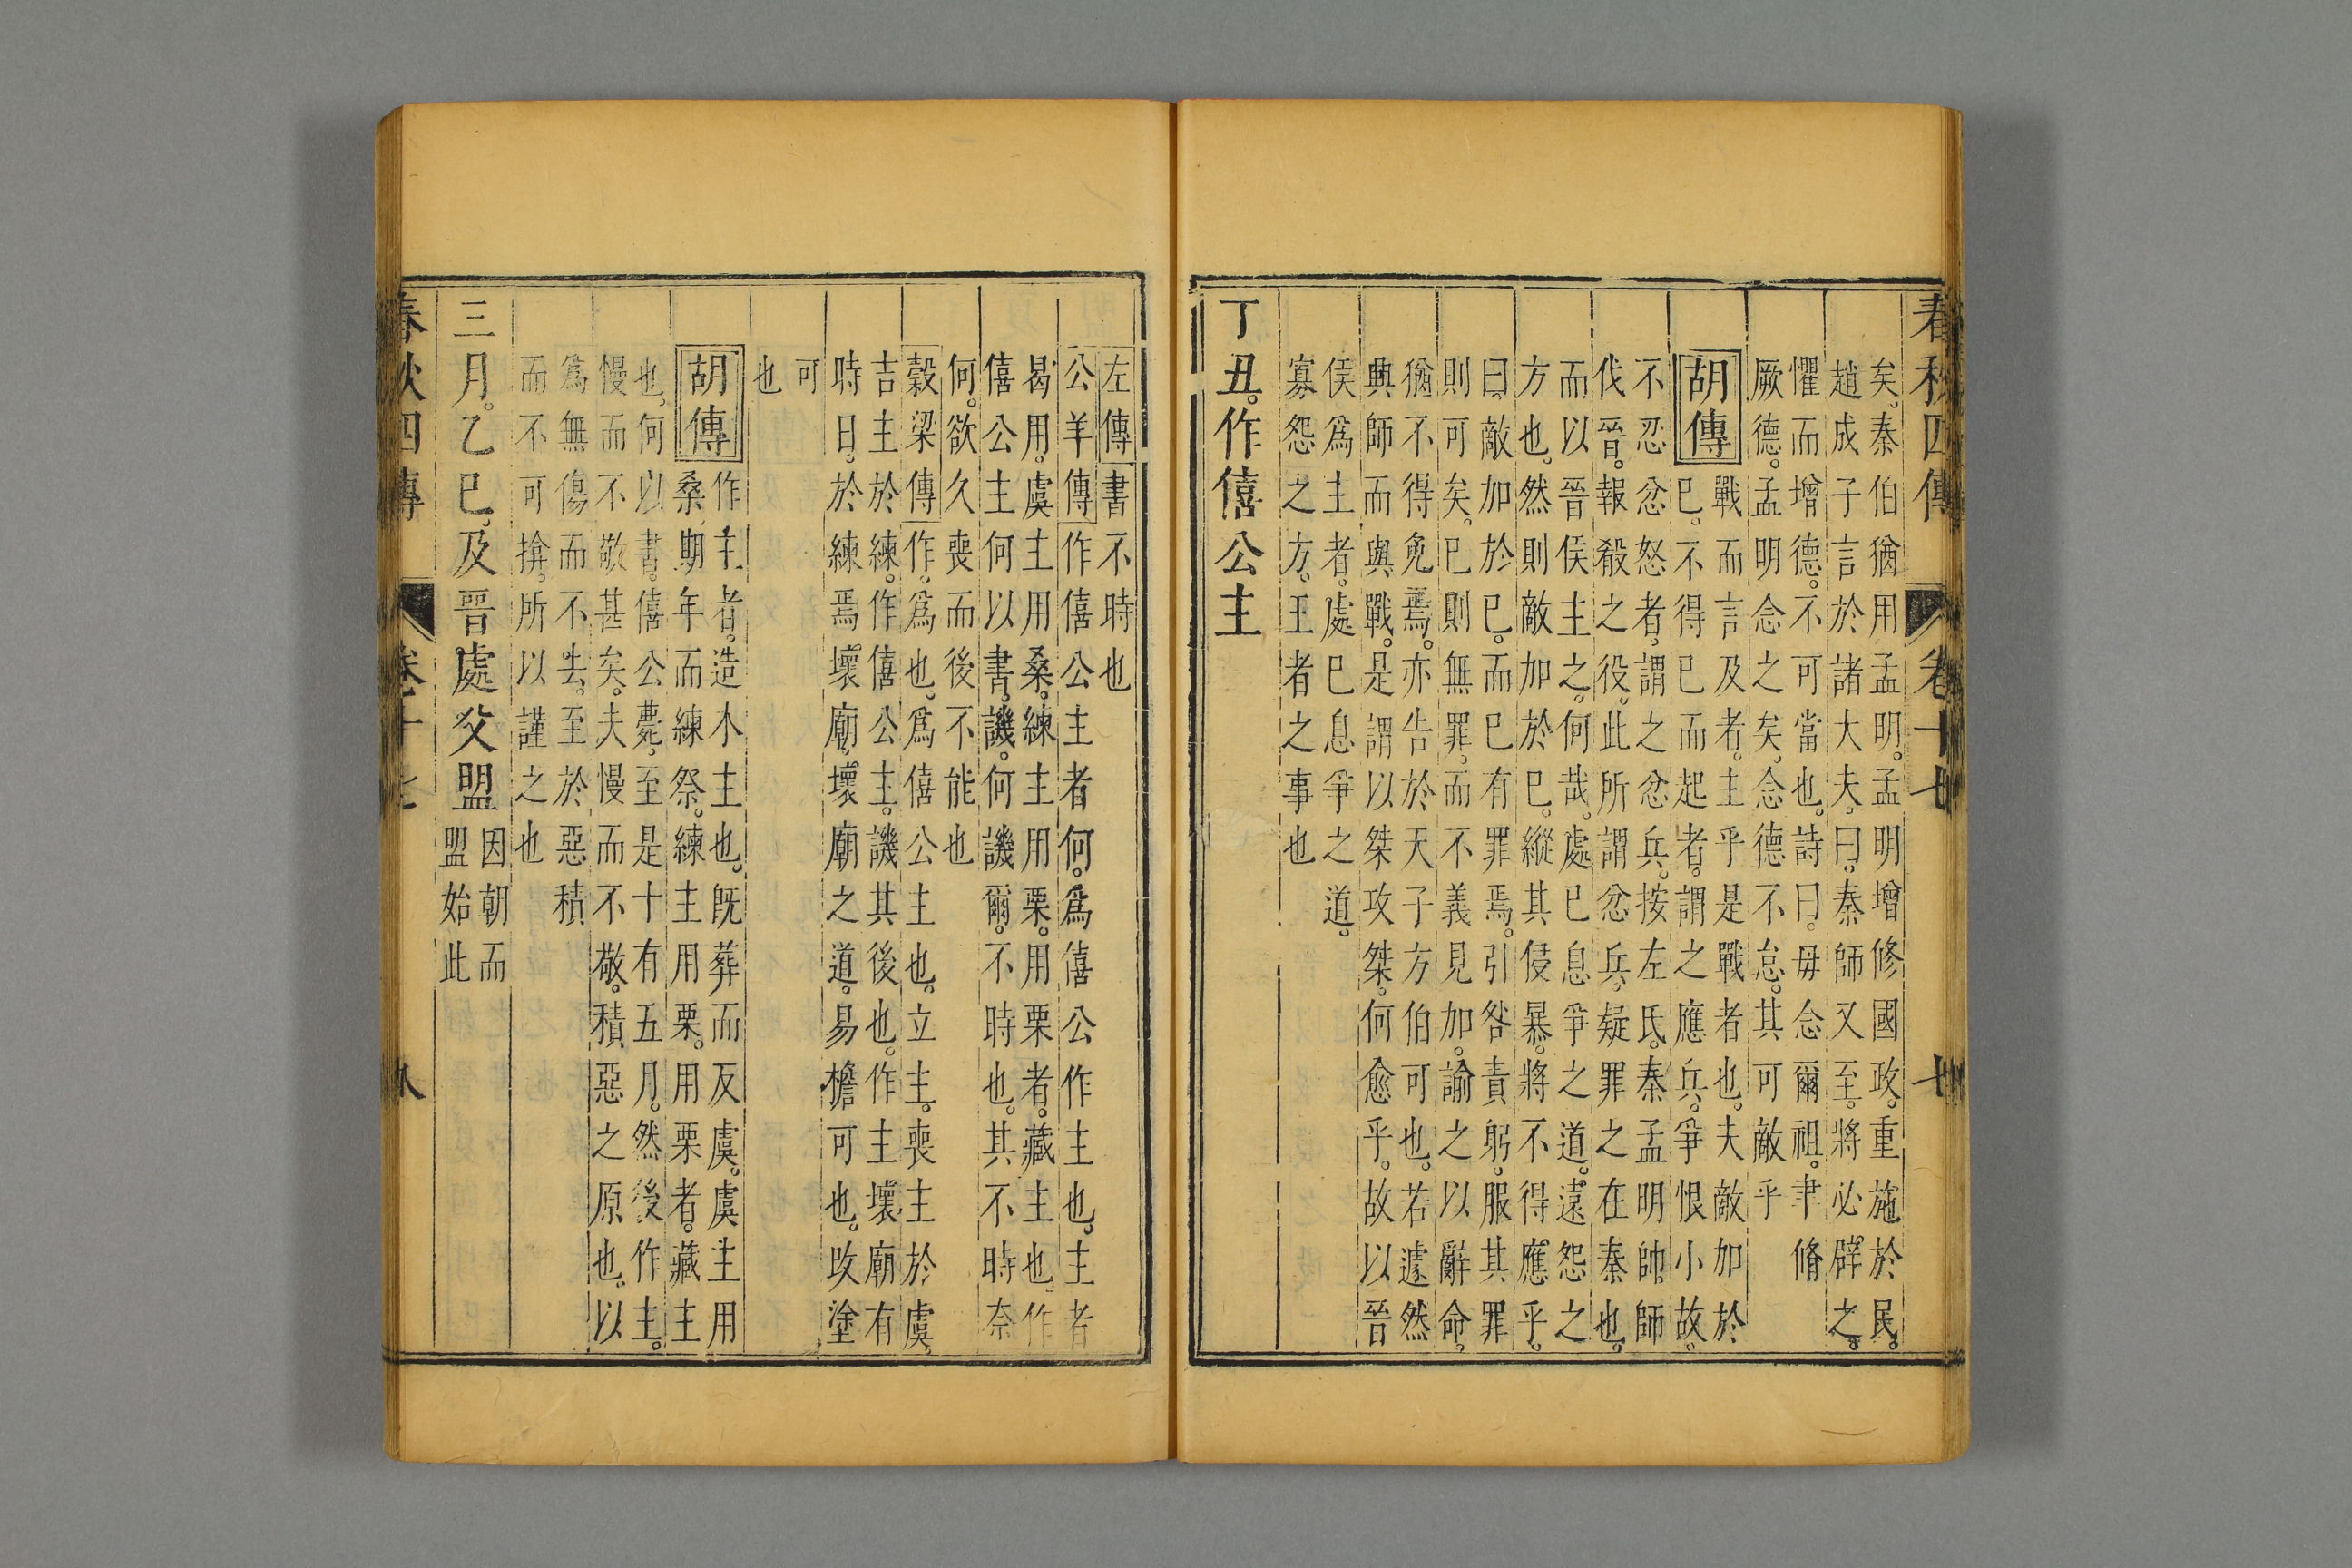 春秋四傳 卷十七 七
矣。秦伯猶用孟明。孟明增修國政。重施於民。
趙成子言於諸大夫。曰。秦師又至。將必辟之。
懼而增德。不可當也。詩曰。毋念爾祖。聿脩
厥德。孟明念之矣。念德不怠。其可敵乎
胡傳 戰而言及者。主乎是戰者也。夫敵加於
巳。不得巳而起者。謂之應兵。爭恨小故。
不忍忿怒者。謂之忿兵。按左氏。秦孟明帥師
伐晉。報殽之役。此所謂忿兵。疑罪之在秦也。
而以晉侯主之。何哉。處巳息爭之道。遠怨之
方也。然則敵加於巳。縱其侵暴。將不得應乎。
曰。敵加於巳。而巳有罪焉。引咎責躬。服其罪
則可矣。巳則無罪。而不義見加。諭之以辭命。
猶不得免焉。亦告於天子方伯可也。若遽然
興師而與戰。是謂以桀攻桀。何愈乎。故以晉
侯爲主者。處巳息爭之道。
寡怨之方。王者之事也
丁丑。作僖公主
左傳 書不時也
公羊傳 作僖公主者何。爲僖公作主也。主者
曷用。虞主用桑。練主用栗。用栗者。藏主也。作
僖公主何以書。譏。何譏爾。不時也。其不時奈
何。欲久喪而後不能也
穀梁傳 作。爲也。爲僖公主也。立主。喪主於虞。
吉主於練。作僖公主。譏其後也。作主壞廟有
時日。於練焉壞廟。壞廟之道。易檐可也。改塗
可
也
胡傳 作主者。造木主也。旣葬而反虞。虞主用
桑。期年而練祭。練主用栗。用栗者。藏主
也。何以書。僖公薨。至是十有五月。然後作主。
慢而不敬甚矣。夫慢而不敬。積惡之原也。以
爲無傷而不去。至於惡積
而不可揜。所以謹之也
三月。乙巳。及晉處父盟 因朝而
盟始此
春秋四傳 卷十七 八